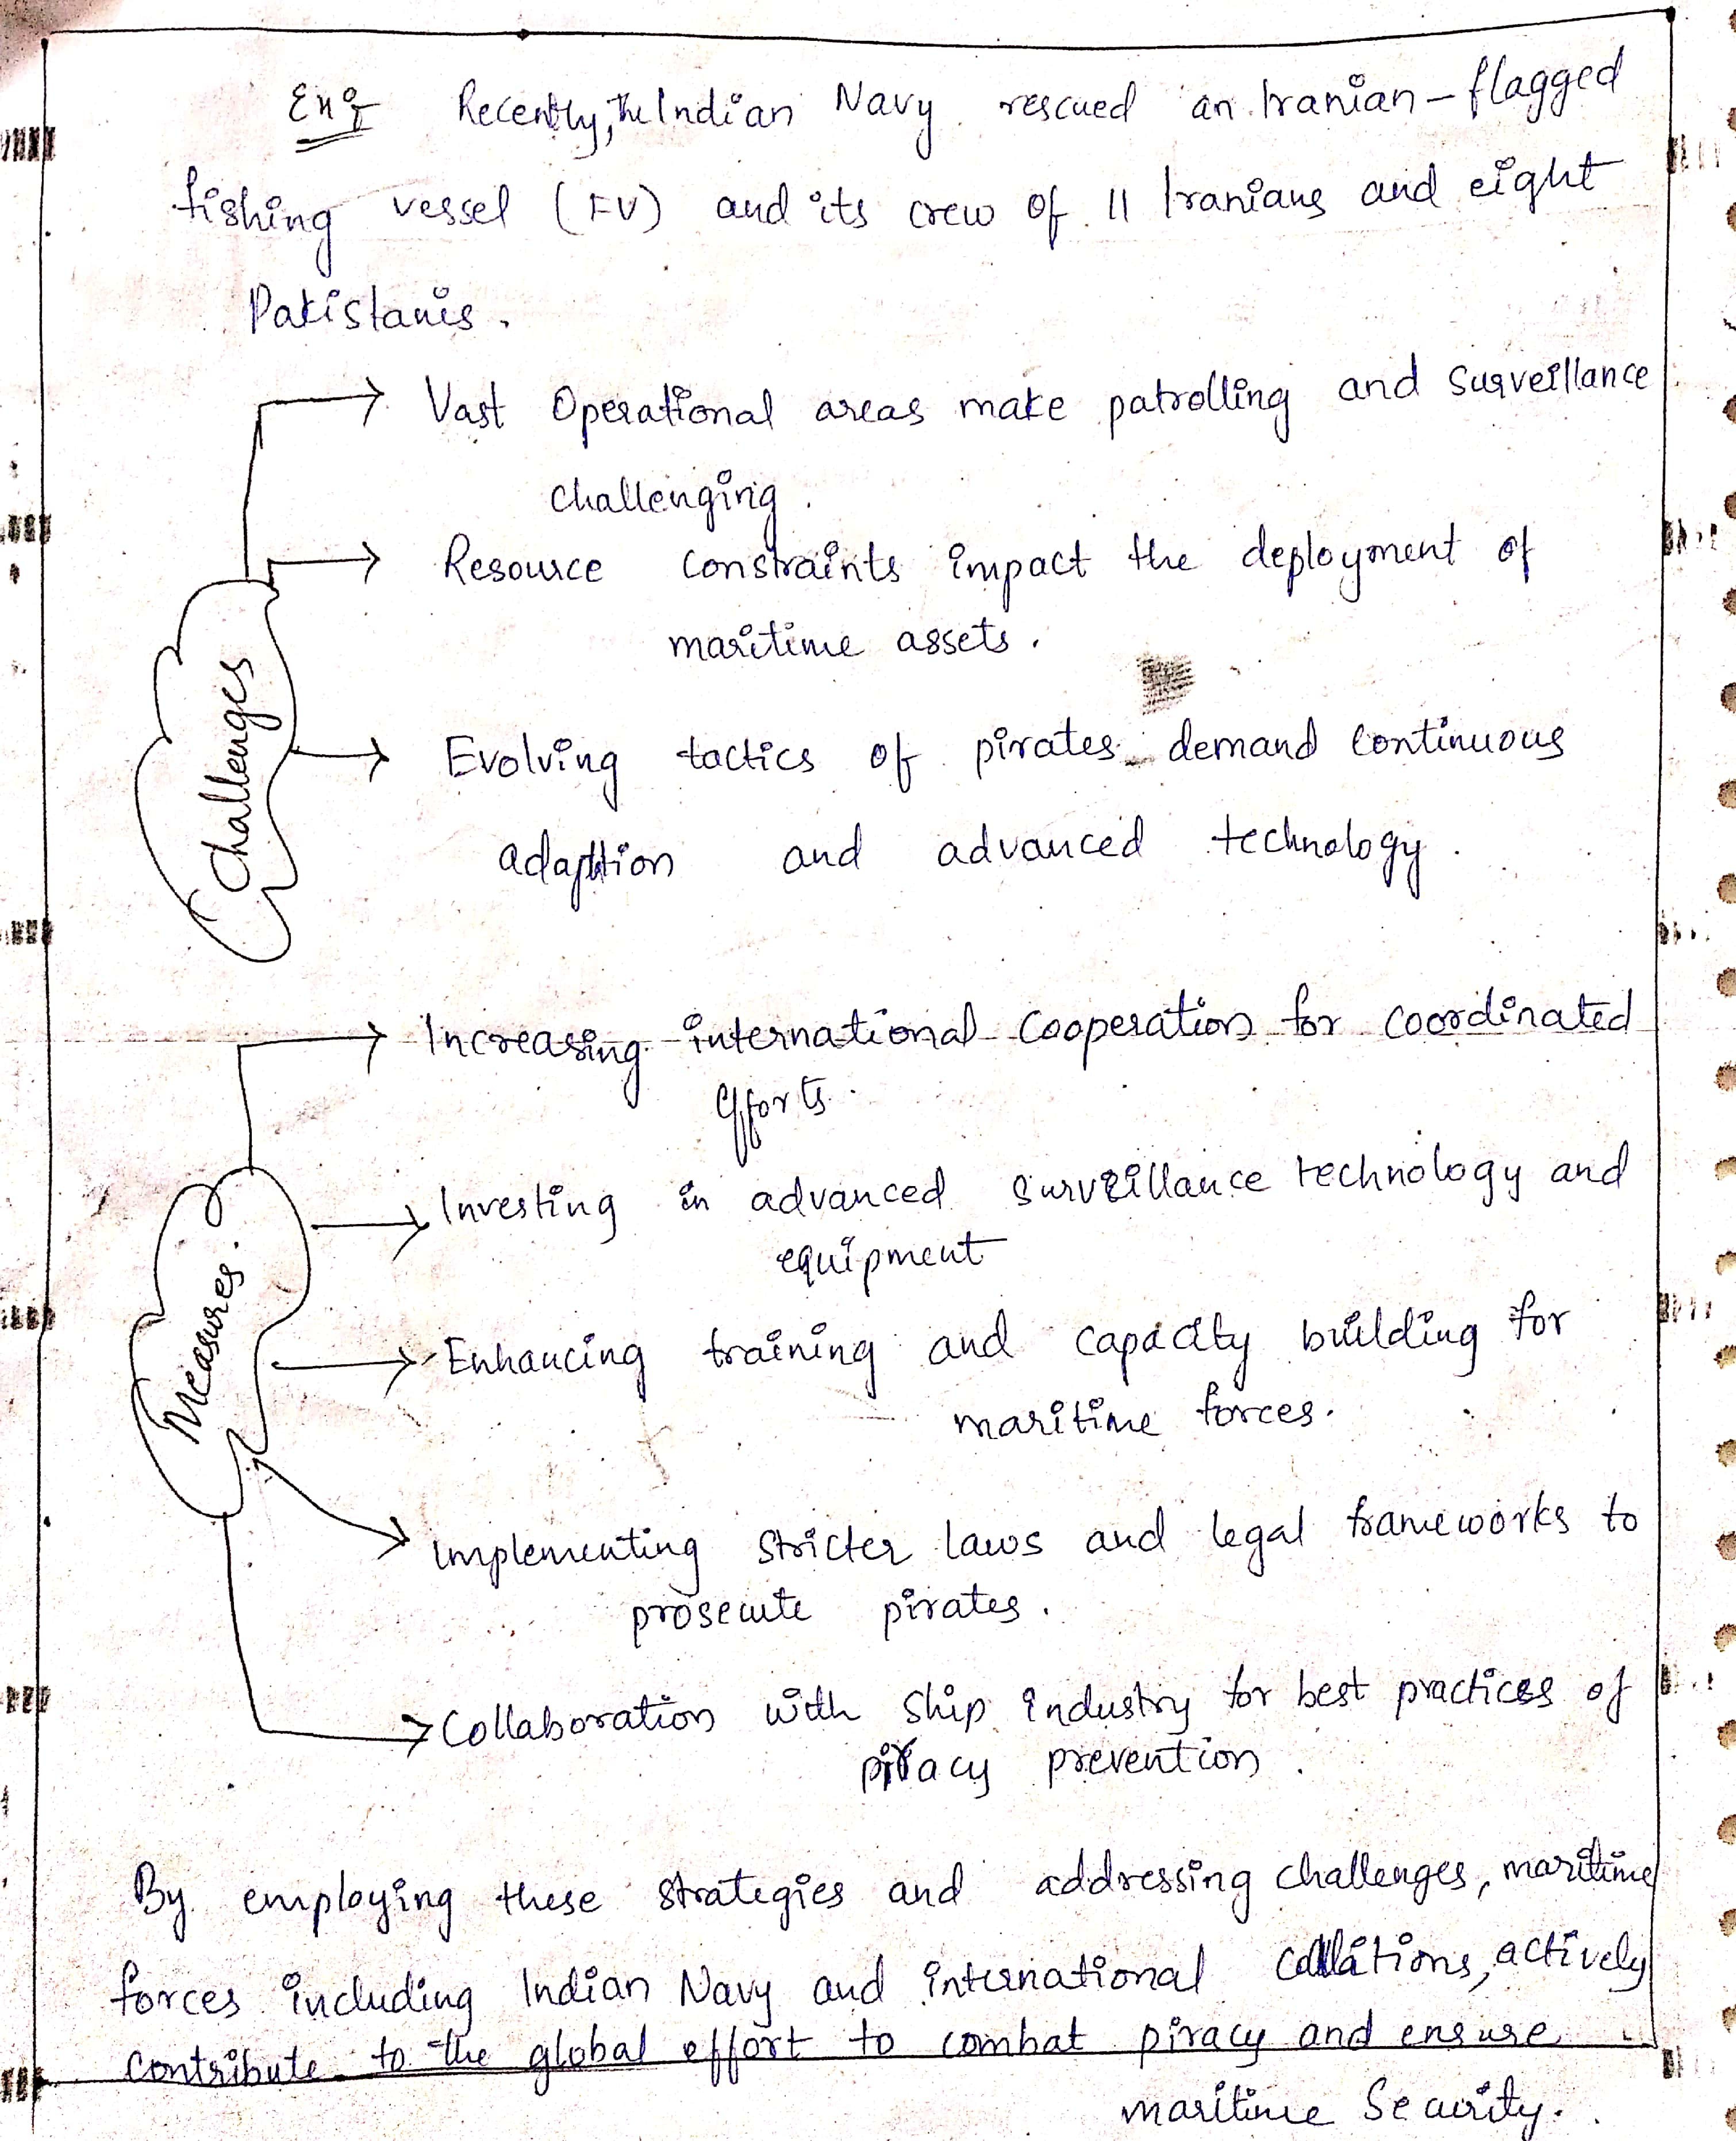 Ex:- Recently, the Indian Navy rescued an Iranian-flagged
fishing vessel (FV) and its crew of 11 Iranians and eight
Pakistanis.
Vast Operational areas make patrolling and surveillance
challenging.
Resource constraints impact the deployment of
maritime assets.
Challenges
Evolving tactics of pirates demand continuous
adaption and advanced technology.
Increasing international cooperation for coordinated
efforts.
Investing in advanced surveillance technology and
equipment
Measures.
Enhancing training and capacity building for
maritime forces.
Implementing stricter laws and legal frameworks to
prosecute pirates.
Collaboration with ship industry for best practices of
piracy prevention.
By employing these strategies and addressing challenges, maritime
forces including Indian Navy and international actively
contribute to the global effort to combat piracy and ensure
maritime Security.